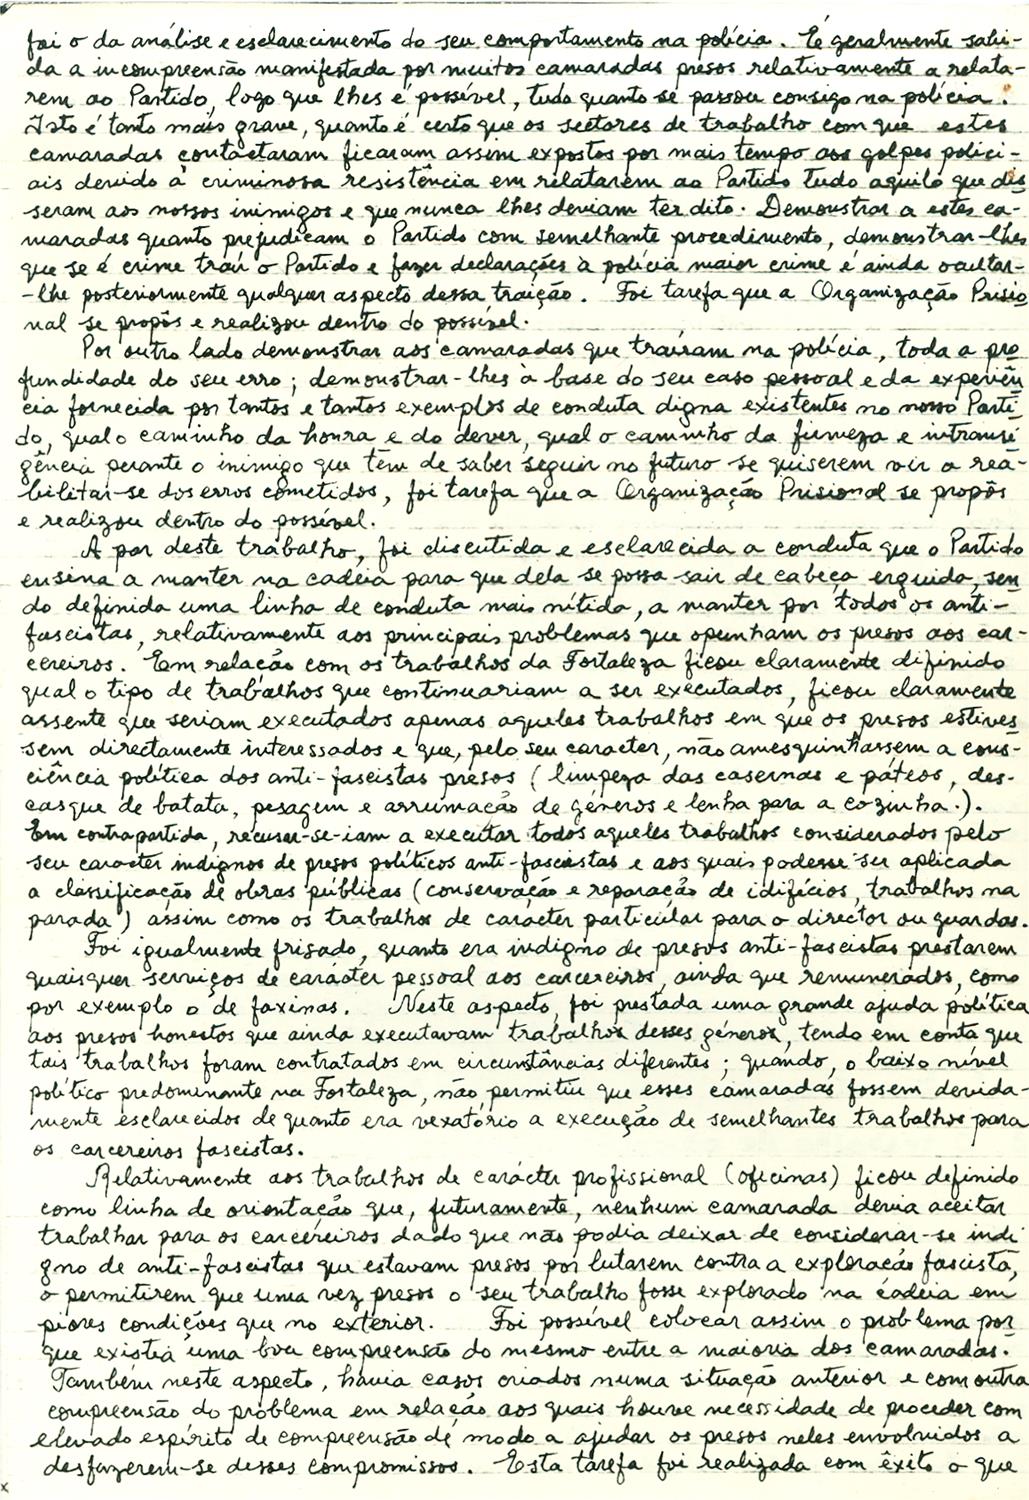 foi o da análise e esclarecimento do seu comportamento na polícia. É geralmente sabi-
da a incompreensão manifestada por muitos camaradas presos relativamente a relata-
rem ao Partido, logo que lhes é possível, tudo quanto se passou consigo na polícia.
Isto é tanto mais grave, quanto é certo que os sectores de trabalho com que estes
camaradas contactaram ficaram assim expostos por mais tempo aos golpes polici-
ais devido à criminosa resistência em relatarem ao Partido tudo aquilo que dis
seram aos nossos inimigos e que nunca lhes deviam ter dito. Demonstrar a estes ca-
maradas quanto prejudicam o Partido com semelhante procedimento, demonstrar-lhes
que se é crime trair o Partido e fazer declarações à polícia maior crime é ainda ocultar-
-lhe posteriormente qualquer aspecto dessa traição. Foi tarefa que a Organização Prisio
nal se propôs e realizou dentro do possível.
Por outro lado demonstrar aos camaradas que traíram na polícia, toda a pro
fundidade do seu erro; demonstrar-lhes à base do seu caso pessoal e da experiên
cia fornecida por tantos e tantos exemplos de conduta digna existentes no nosso Parti
do, qual o caminho da honra e do dever, qual o caminho da firmeza e intransi
gência perante o inimigo que têm de saber seguir no futuro se quiserem vir a rea-
bilitar-se dos erros cometidos, foi tarefa que a Organização Prisional se propôs
e realizou dentro do possível.
A par deste trabalho, foi discutida e esclarecida a conduta que o Partido
ensina a manter na cadeia para que dela se possa sair de cabeça erguida, sen
do definida uma linha de conduta mais nítida, a manter por todos os anti-
fascistas, relativamente aos principais problemas que opunham os presos aos car-
cereiros. Em relação com os trabalhos da Fortaleza ficou claramente difinido
qual o tipo de trabalhos que continuariam a ser executados, ficou claramente
assente que seriam executados apenas aqueles trabalhos em que os presos estives
sem directamente interessados e que, pelo seu caracter, não amesquinhassem a cons-
ciência política dos anti-fascistas presos (limpeza das casernas e páteos, des-
casque de batata, pesagem e arrumação de géneros e lenha para a cozinha.).
Em contrapartida, recusar-se-iam a executar todos aqueles trabalhos considerados pelo
seu caracter indignos de presos políticos anti-fascistas e aos quais podesse ser aplicada
a classificação de obras públicas (conservação e reparação de idifícios, trabalhos na
parada) assim como os trabalhos de carácter particular para o director ou guardas.
Foi igualmente frisado, quanto era indigno de presos anti-fascistas prestarem
quaisquer serviços de carácter pessoal aos carcereiros, ainda que remunerados, como
por exemplo o de faxinas. Neste aspecto, foi prestada uma grande ajuda política
aos presos honestos que ainda executavam trabalhos desses géneros, tendo em conta que
tais trabalhos foram contratados em circunstâncias diferentes; quando, o baixo nível
político predominante na Fortaleza, não permitiu que esses camaradas fossem devida-
mente esclarecidos de quanto era vexatório a execução de semelhantes trabalhos para
os carcereiros fascistas.
Relativamente aos trabalhos de carácter profissional (oficinas) ficou definido
como linha de orientação que, futuramente, nenhum camarada devia aceitar
trabalhar para os carcereiros dado que não podia deixar de considerar-se indi
gno de anti-fascistas que estavam presos por lutarem contra a exploração fascista,
o permitirem que uma vez presos o seu trabalho fosse explorado na cadeia em
piores condições que no exterior. Foi possível colocar assim o problema por
que existia uma boa compreensão do mesmo entre a maioria dos camaradas.
Também neste aspecto, havia casos criados numa situação anterior e com outra
compreensão do problema em relação aos quais houve necessidade de proceder com
elevado espírito de compreensão de modo a ajudar os presos neles envolvidos a
desfazerem-se desses compromissos. Esta tarefa foi realizada com êxito o que